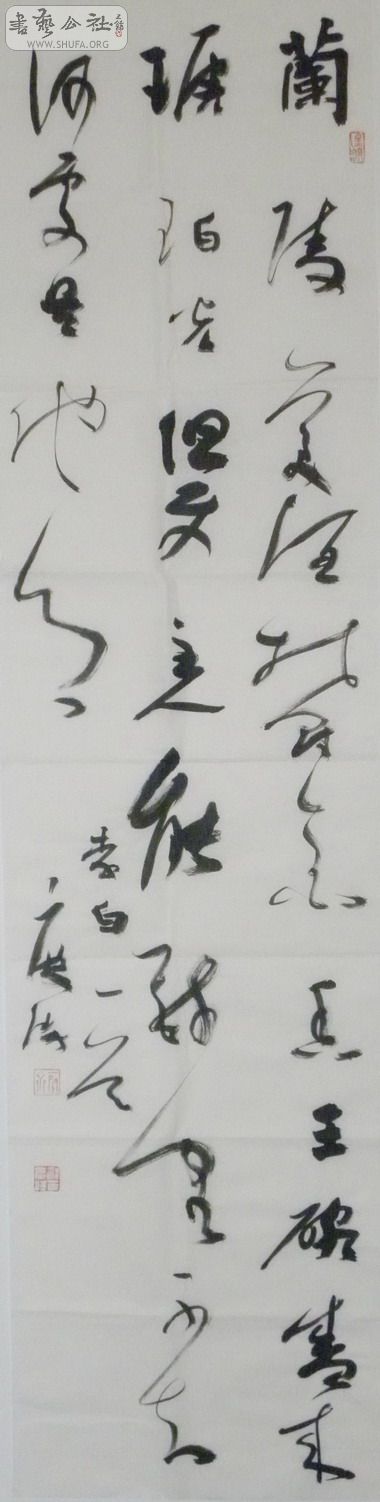 蘭陵美酒欎金香玉碗盛来
琥珀光但使主人能醉客不知
何處是他鄉
李白一首
書藝公社
WWW.SHUFA.ORG